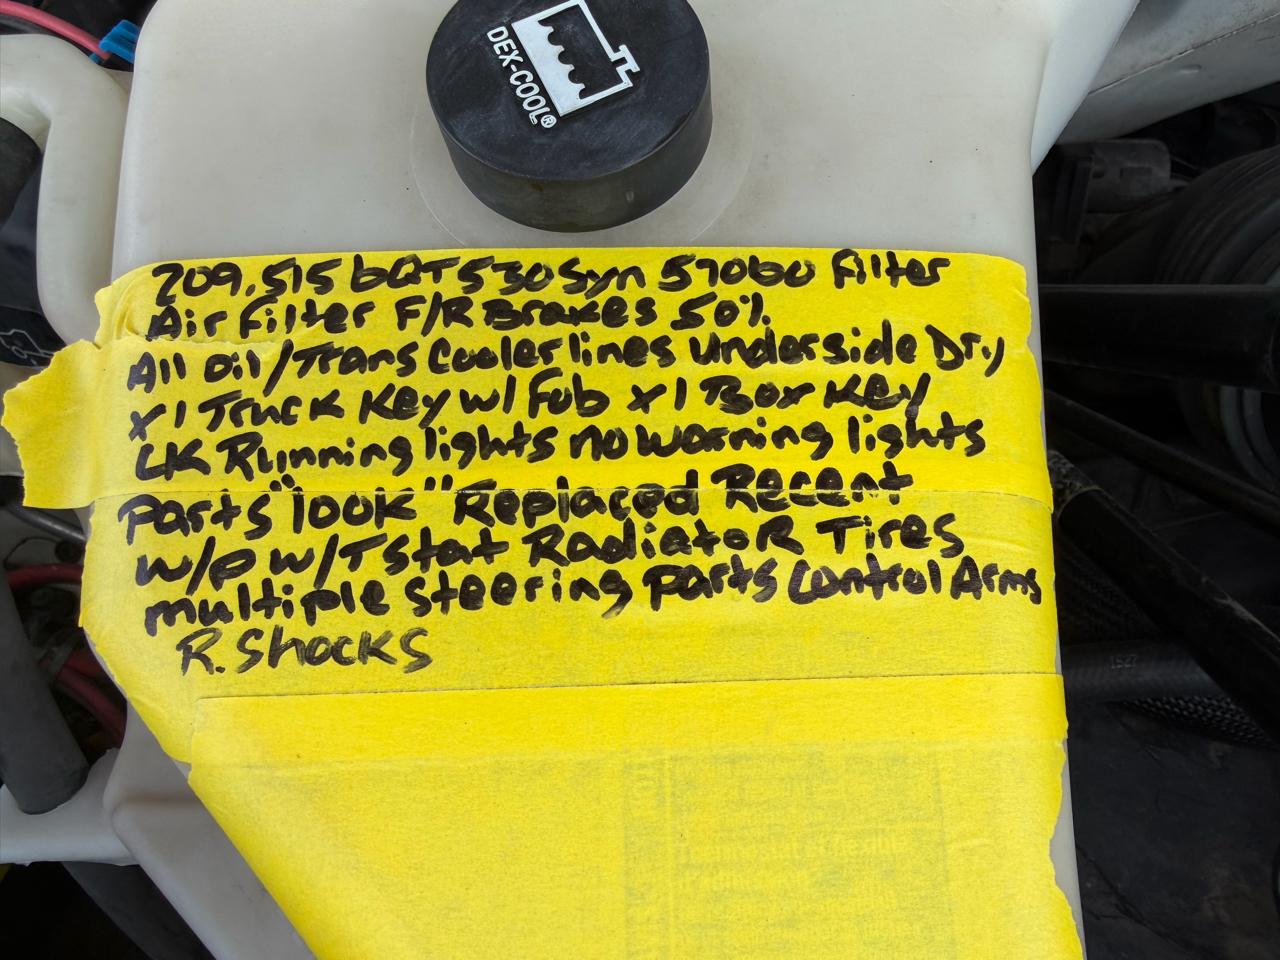 DEX-COOL®
209,515 6QT 530 Syn 57060 Filter
Air Filter F/R Brakes 50%
All oil/Trans Cooler lines Underside Dry
x1 Truck Key w/ Fob x1 Box Key
CK Running lights no warning lights
Parts "look" Replaced Recent
w/p w/Tstat Radiator Tires
multiple steering parts Control Arms
R. Shocks
1527